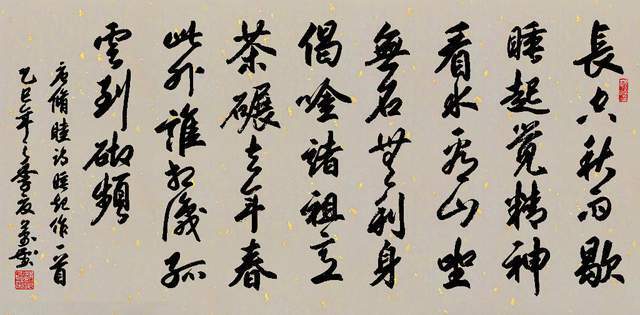 長空秋雨歇
睡起覺精神
看水看山坐
無名無利身
偈吟諸祖意
茶碾去年春
此外誰相識孤
雲到砌頻
唐脩睦詩睡起作一首
乙巳年之季夏